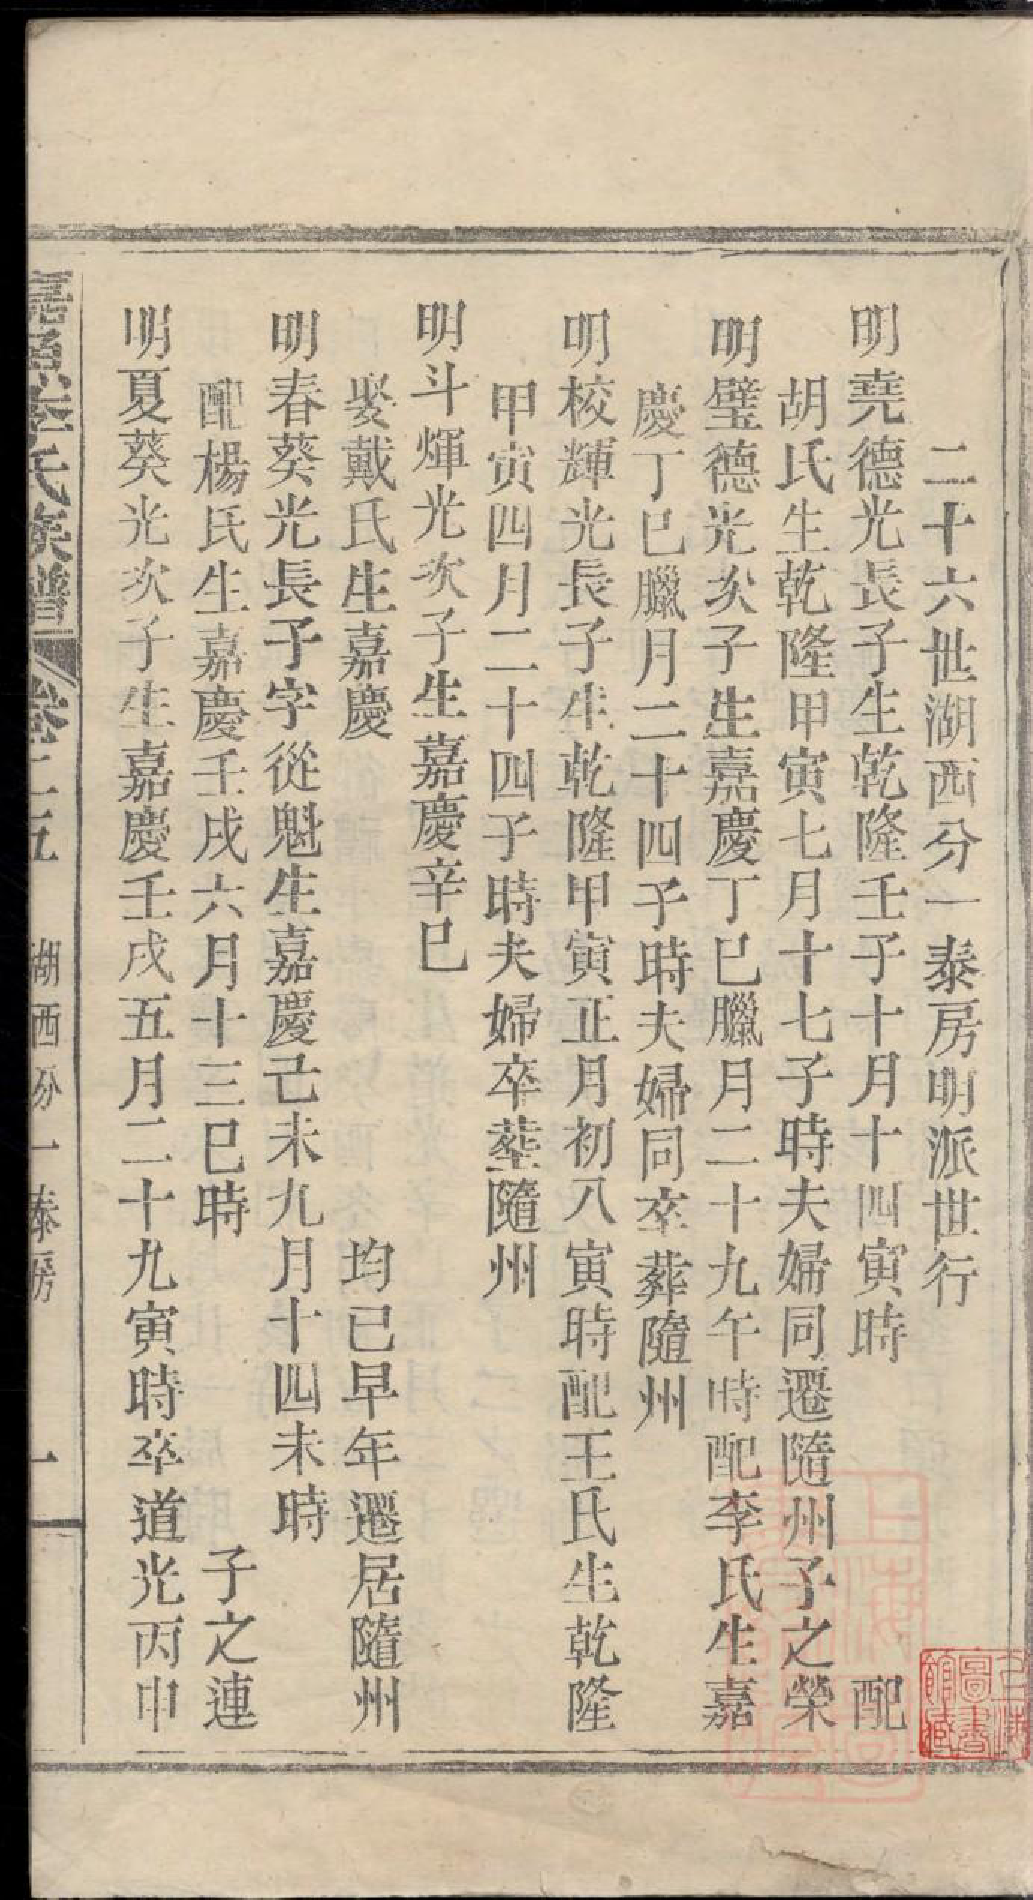 二十六世湖西分一泰房明派世行
明堯德光長子生乾隆壬子十月十四寅時 配
胡氏生乾隆甲寅七月十七子時夫婦同遷隨州子之榮
明璧德光次子生嘉慶丁巳臘月二十九午時配李氏生嘉
慶丁巳臘月二十四子時夫婦同卒葬隨州
明校輝光長子生乾隆甲寅正月初八寅時配王氏生乾隆
甲寅四月二十四子時夫婦卒塟隨州
明斗煇光次子生嘉慶辛巳
娶戴氏生嘉慶 均已早年遷居隨州
明春葵光長子字從魁生嘉慶己未九月十四未時
配楊氏生嘉慶壬戌六月十三巳時 子之連
明夏葵光次子生嘉慶壬戌五月二十九寅時卒道光丙申
李氏族譜 卷二五 湖西分一泰房 一
上海圖書館藏